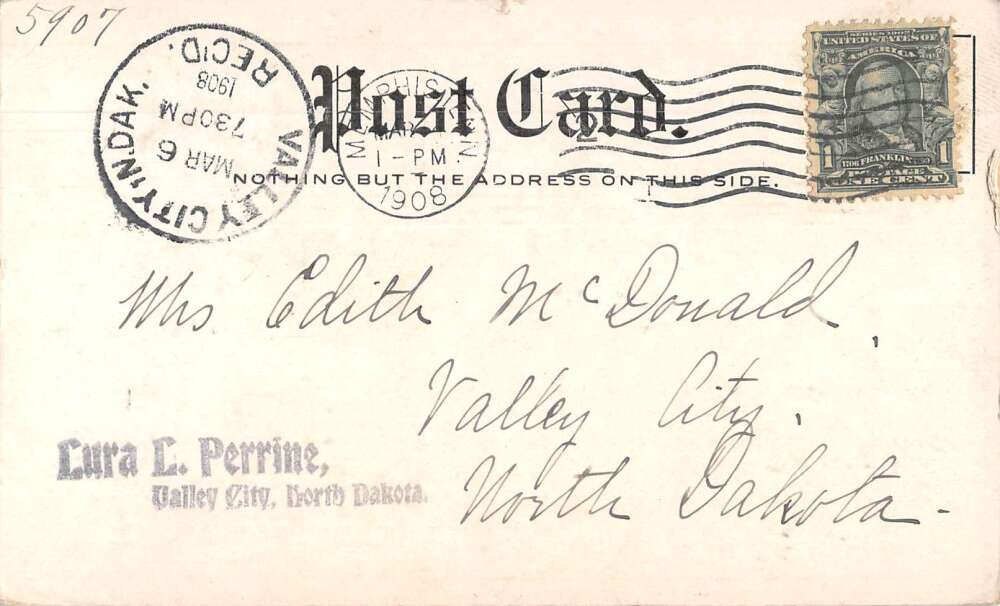 5907
VALLEY CITY, N. DAK.
MAR 6
730PM
1908
REC'D.
Post Card.
MEMPHIS TENN
MAR
1-PM
1908
NOTHING BUT THE ADDRESS ON THIS SIDE.
SERIES 1902
UNITED STATES OF
AMERICA
1706 FRANKLIN 90
1 POSTAGE 1
ONE CENT
Mrs Edith McDonald,
Valley City,
North Dakota.
Lura L. Perrine,
Valley City, North Dakota.